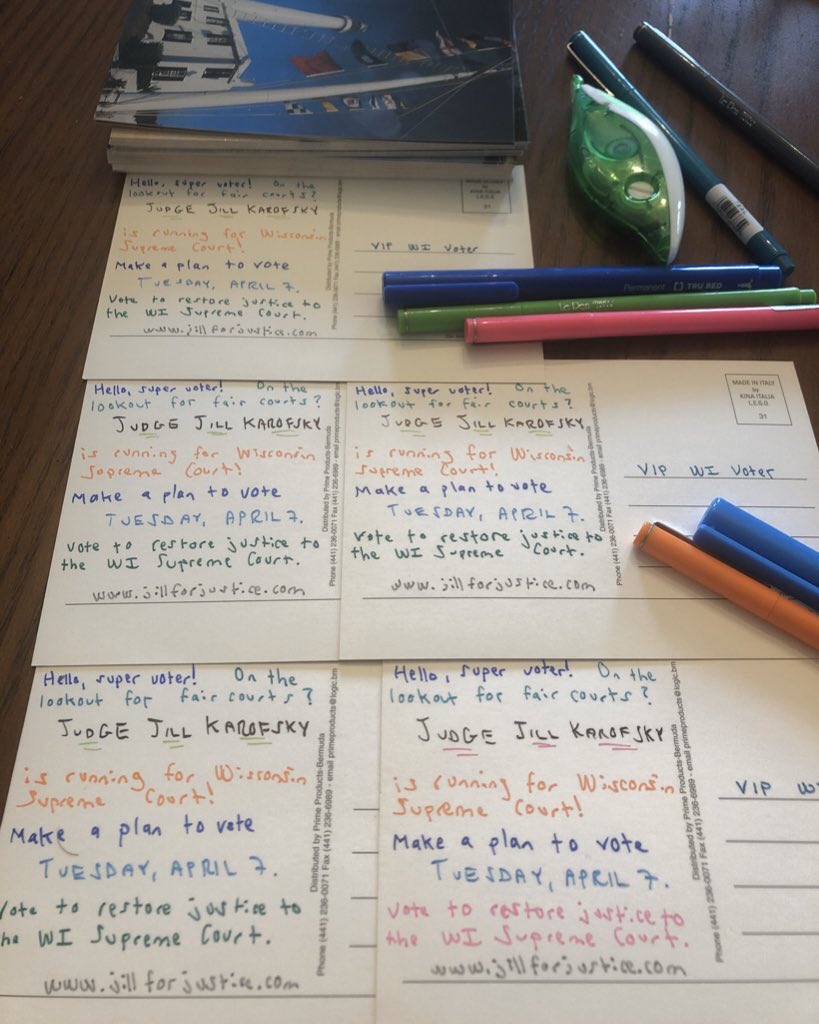 Hello, super voter! On the
lookout for fair courts?
JUDGE JILL KAROFSKY
is running for Wisconsin
Supreme Court!
Make a plan to vote
TUESDAY, APRIL 7.
Vote to restore justice to
the WI Supreme Court.
www.jillforjustice.com
Distributed by Prime Products-Bermuda
Phone (441) 236-0071 Fax (441) 236-6989 - email
KINA ITALIA
L.E.G.O.
31
VIP WI Voter
Permanent TRU RED
Le Pen
Le Pen
Hello, super voter! On the
lookout for fair courts?
JUDGE JILL KAROFSKY
is running for Wisconsin
Supreme Court!
Make a plan to vote
TUESDAY, APRIL 7.
Vote to restore justice to
the WI Supreme Court.
www.jillforjustice.com
Distributed by Prime Products-Bermuda
Phone (441) 236-0071 Fax (441) 236-6989 - email
Hello, super voter! On the
lookout for fair courts?
JUDGE JILL KAROFSKY
is running for Wisconsin
Supreme Court!
Make a plan to vote
TUESDAY, APRIL 7.
Vote to restore justice to
the WI Supreme Court.
www.jillforjustice.com
Distributed by Prime Products-Bermuda
Phone (441) 236-0071 Fax (441) 236-6989 - email primeproducts@logic.bm
MADE IN ITALY
by
KINA ITALIA
L.E.G.O.
31
VIP WI Voter
Hello, super voter! On the
lookout for fair courts?
JUDGE JILL KAROFSKY
is running for Wisconsin
Supreme Court!
Make a plan to vote
TUESDAY, APRIL 7.
Vote to restore justice to
the WI Supreme Court.
www.jillforjustice.com
Distributed by Prime Products-Bermuda
Phone (441) 236-0071 Fax (441) 236-6989 - email primeproducts
Hello, super voter! On the
lookout for fair courts?
JUDGE JILL KAROFSKY
is running for Wisconsin
Supreme Court!
Make a plan to vote
TUESDAY, APRIL 7.
Vote to restore justice to
the WI Supreme Court.
www.jillforjustice.com
Distributed by Prime Products-Bermuda
Phone (441) 236-0071 Fax (441) 236-6989 - email primeproducts@logic.bm
VIP W